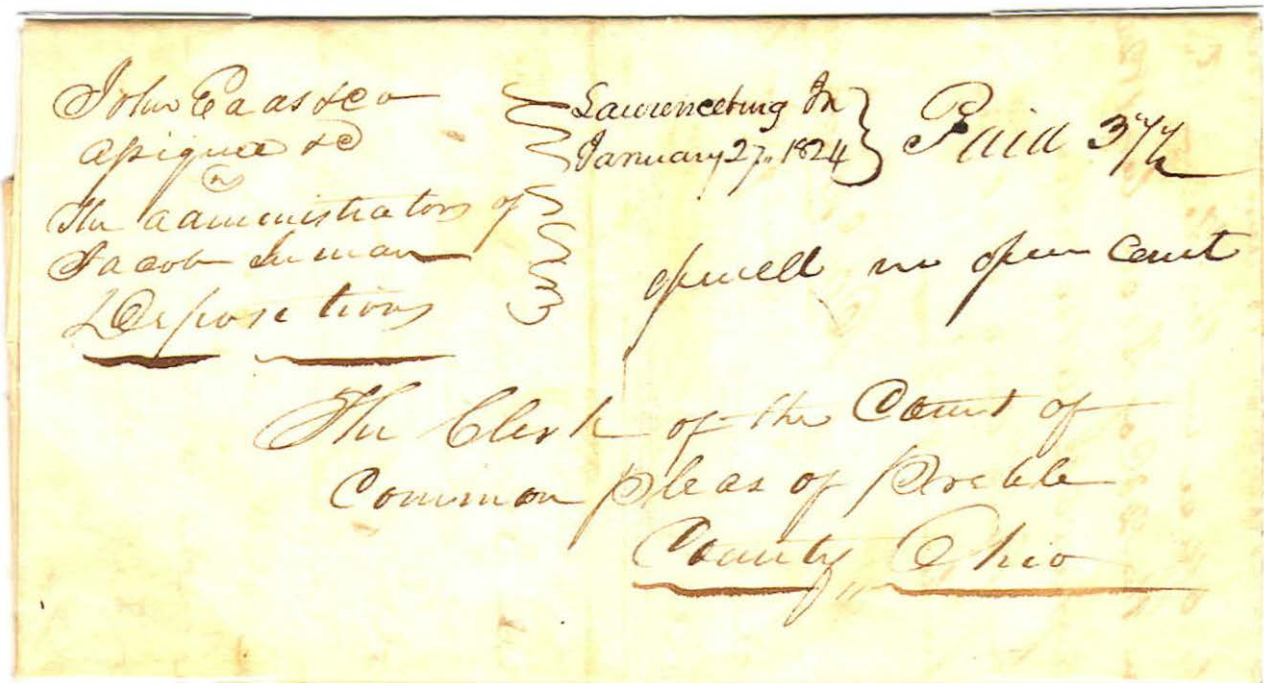 John
assignee &c
vs
The administrators of
Jacob Inman
Depositions
Lawrenceburg Ia
January 27. 1824
Paid 37½
opened in open Court
The Clerk of the Court of
Common Pleas of Preble
County Ohio